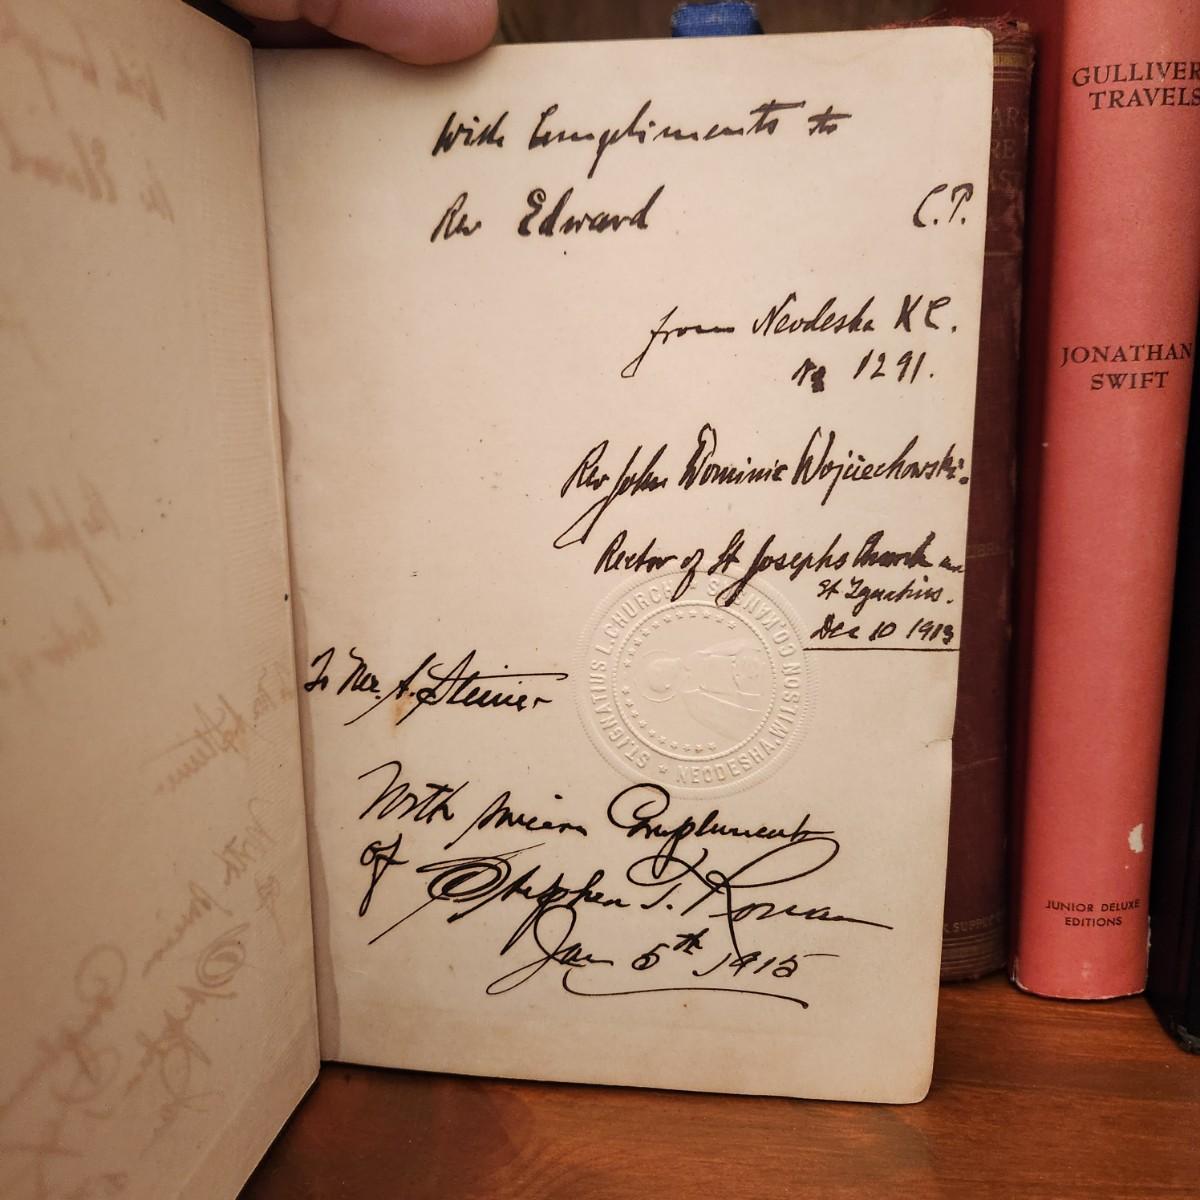 With Compliments to
Rev Edward C.P.
from Neodesha K C.
No 1291.
Rev John Dominic Wojciechowski.
Rector of St Josephs Church an
St Ignatius.
Dec 10 1913
ST. IGNATIUS L. CHURCH
NEODESHA, WILSON CO. KANSAS
To Rev. A. Steiner
With sincere Compliments
of Stephen T. Roman
Jan 5th 1915
GULLIVER
TRAVELS
JONATHAN
SWIFT
JUNIOR DELUXE
EDITIONS